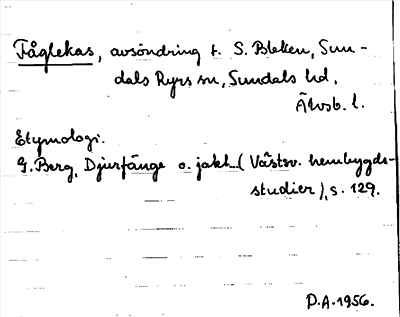 Fåglekas, avsöndring t. S. Bleken, Sun-
dals Ryrs sn, Sundals hd,
Älvsb. l.
Etymologi.
G. Berg, Djurfänge o. jakt (Västsv. hembygds-
studier), s. 129.
P.A. 1956.